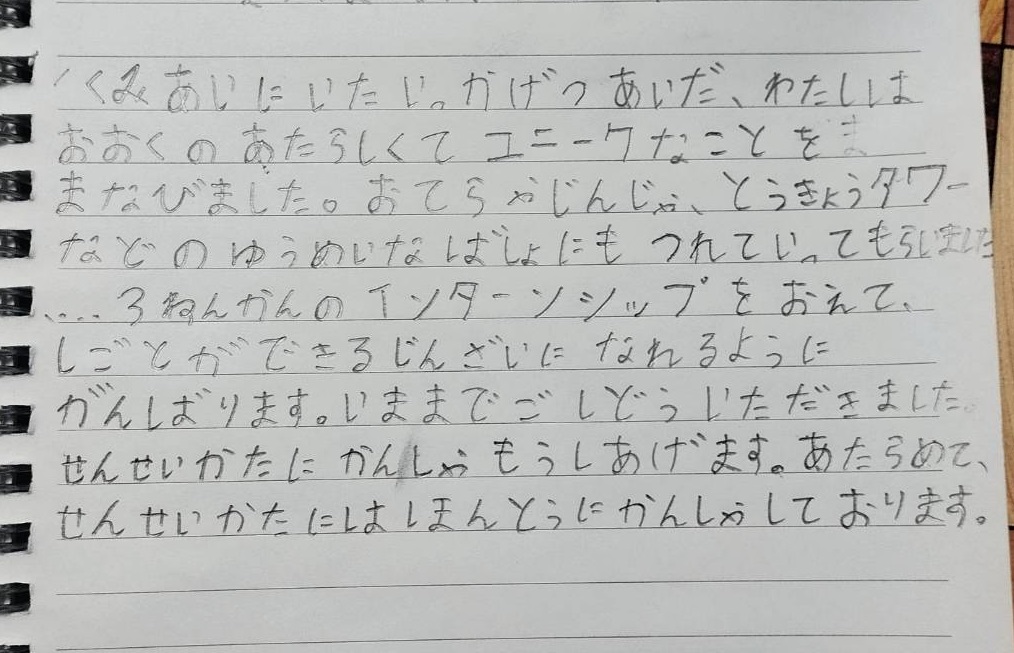 くみあいにいたい。かげつあいだ、わたしは
おおくのあたらしくてユニークなことを
まなびました。おてらやじんじゃ、とうきょうタワー
などのゆうめいなばしょにもつれていってもらいました
....3ねんかんのインターンシップをおえて、
しごとができるじんざいになれるように
がんばります。いままでごしどういただきました
せんせいかたにかんしゃもうしあげます。あたらめて、
せんせいかたにはほんとうにかんしゃしております。